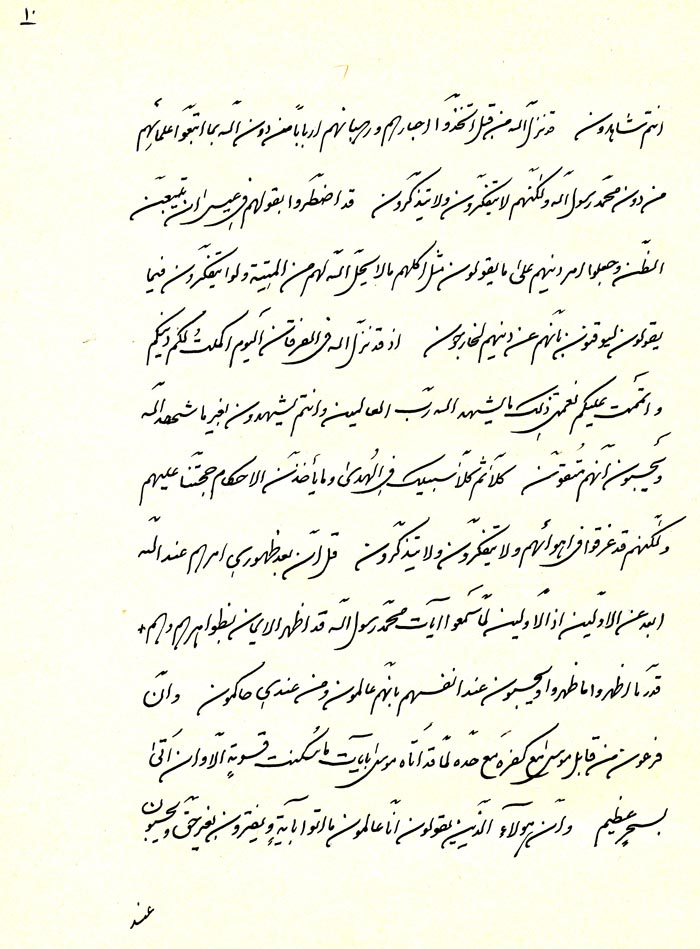 ١٠
انتم تشاهدون قد نزل الله من قبل اتّخذوا احبارهم ورهبانهم ارباباً من دون الله بما اتبعوا علمائهم
من دون محمّد رسول الله ولكنّهم لا يتفكّرون ولا يتذكّرون قد اضطرّوا بقولهم في عيسى ان يتّبعنّ
الظّن وجعلوا امر دينهم على ما يقولون مثل اكلهم ما لا يحلّ الله لهم من الميتة ولو يتفكّرون فيما
يقولون ليوقنون بانّهم عن دينهم لخارجون اذ قد نزل الله في الفرقان اليوم اكملت لكم دينكم
واتممت عليكم نعمتي ذلك ما يشهد الله ربّ العالمين وانتم تشهدون بغير ما شهد الله
ويحسبون انّهم متّقون كلّا ثمّ كلّا سبيلك في الهدى وما يأخذنّ الاحكام حجّتنا عليهم
ولكنّهم قد غرقوا في اهوائهم ولا يتفكّرون ولا يتذكّرون قل انّ بعد ظهوري امرهم عند الله
ابعد عن الاوّلين اذ الاوّلين لمّا سمعوا آيات محمّد رسول الله قد اظهر الايمان بظواهرهم وهم
قدر ما اظهروا ما ظهروا ويحسبون عند انفسهم بانّهم عالمون ومن عندي حاكمون وانّ
فرعون من قابل موسى مع كفره مع حدّه لمّا قد اتاه موسى بآيات ما سكنت الّا وان اتى
بسحر عظيم وانّ هولاء الذين يقولون انّا عالمون ما اتوا بآية ويفترون بغير حقّ ويحسبون
عند